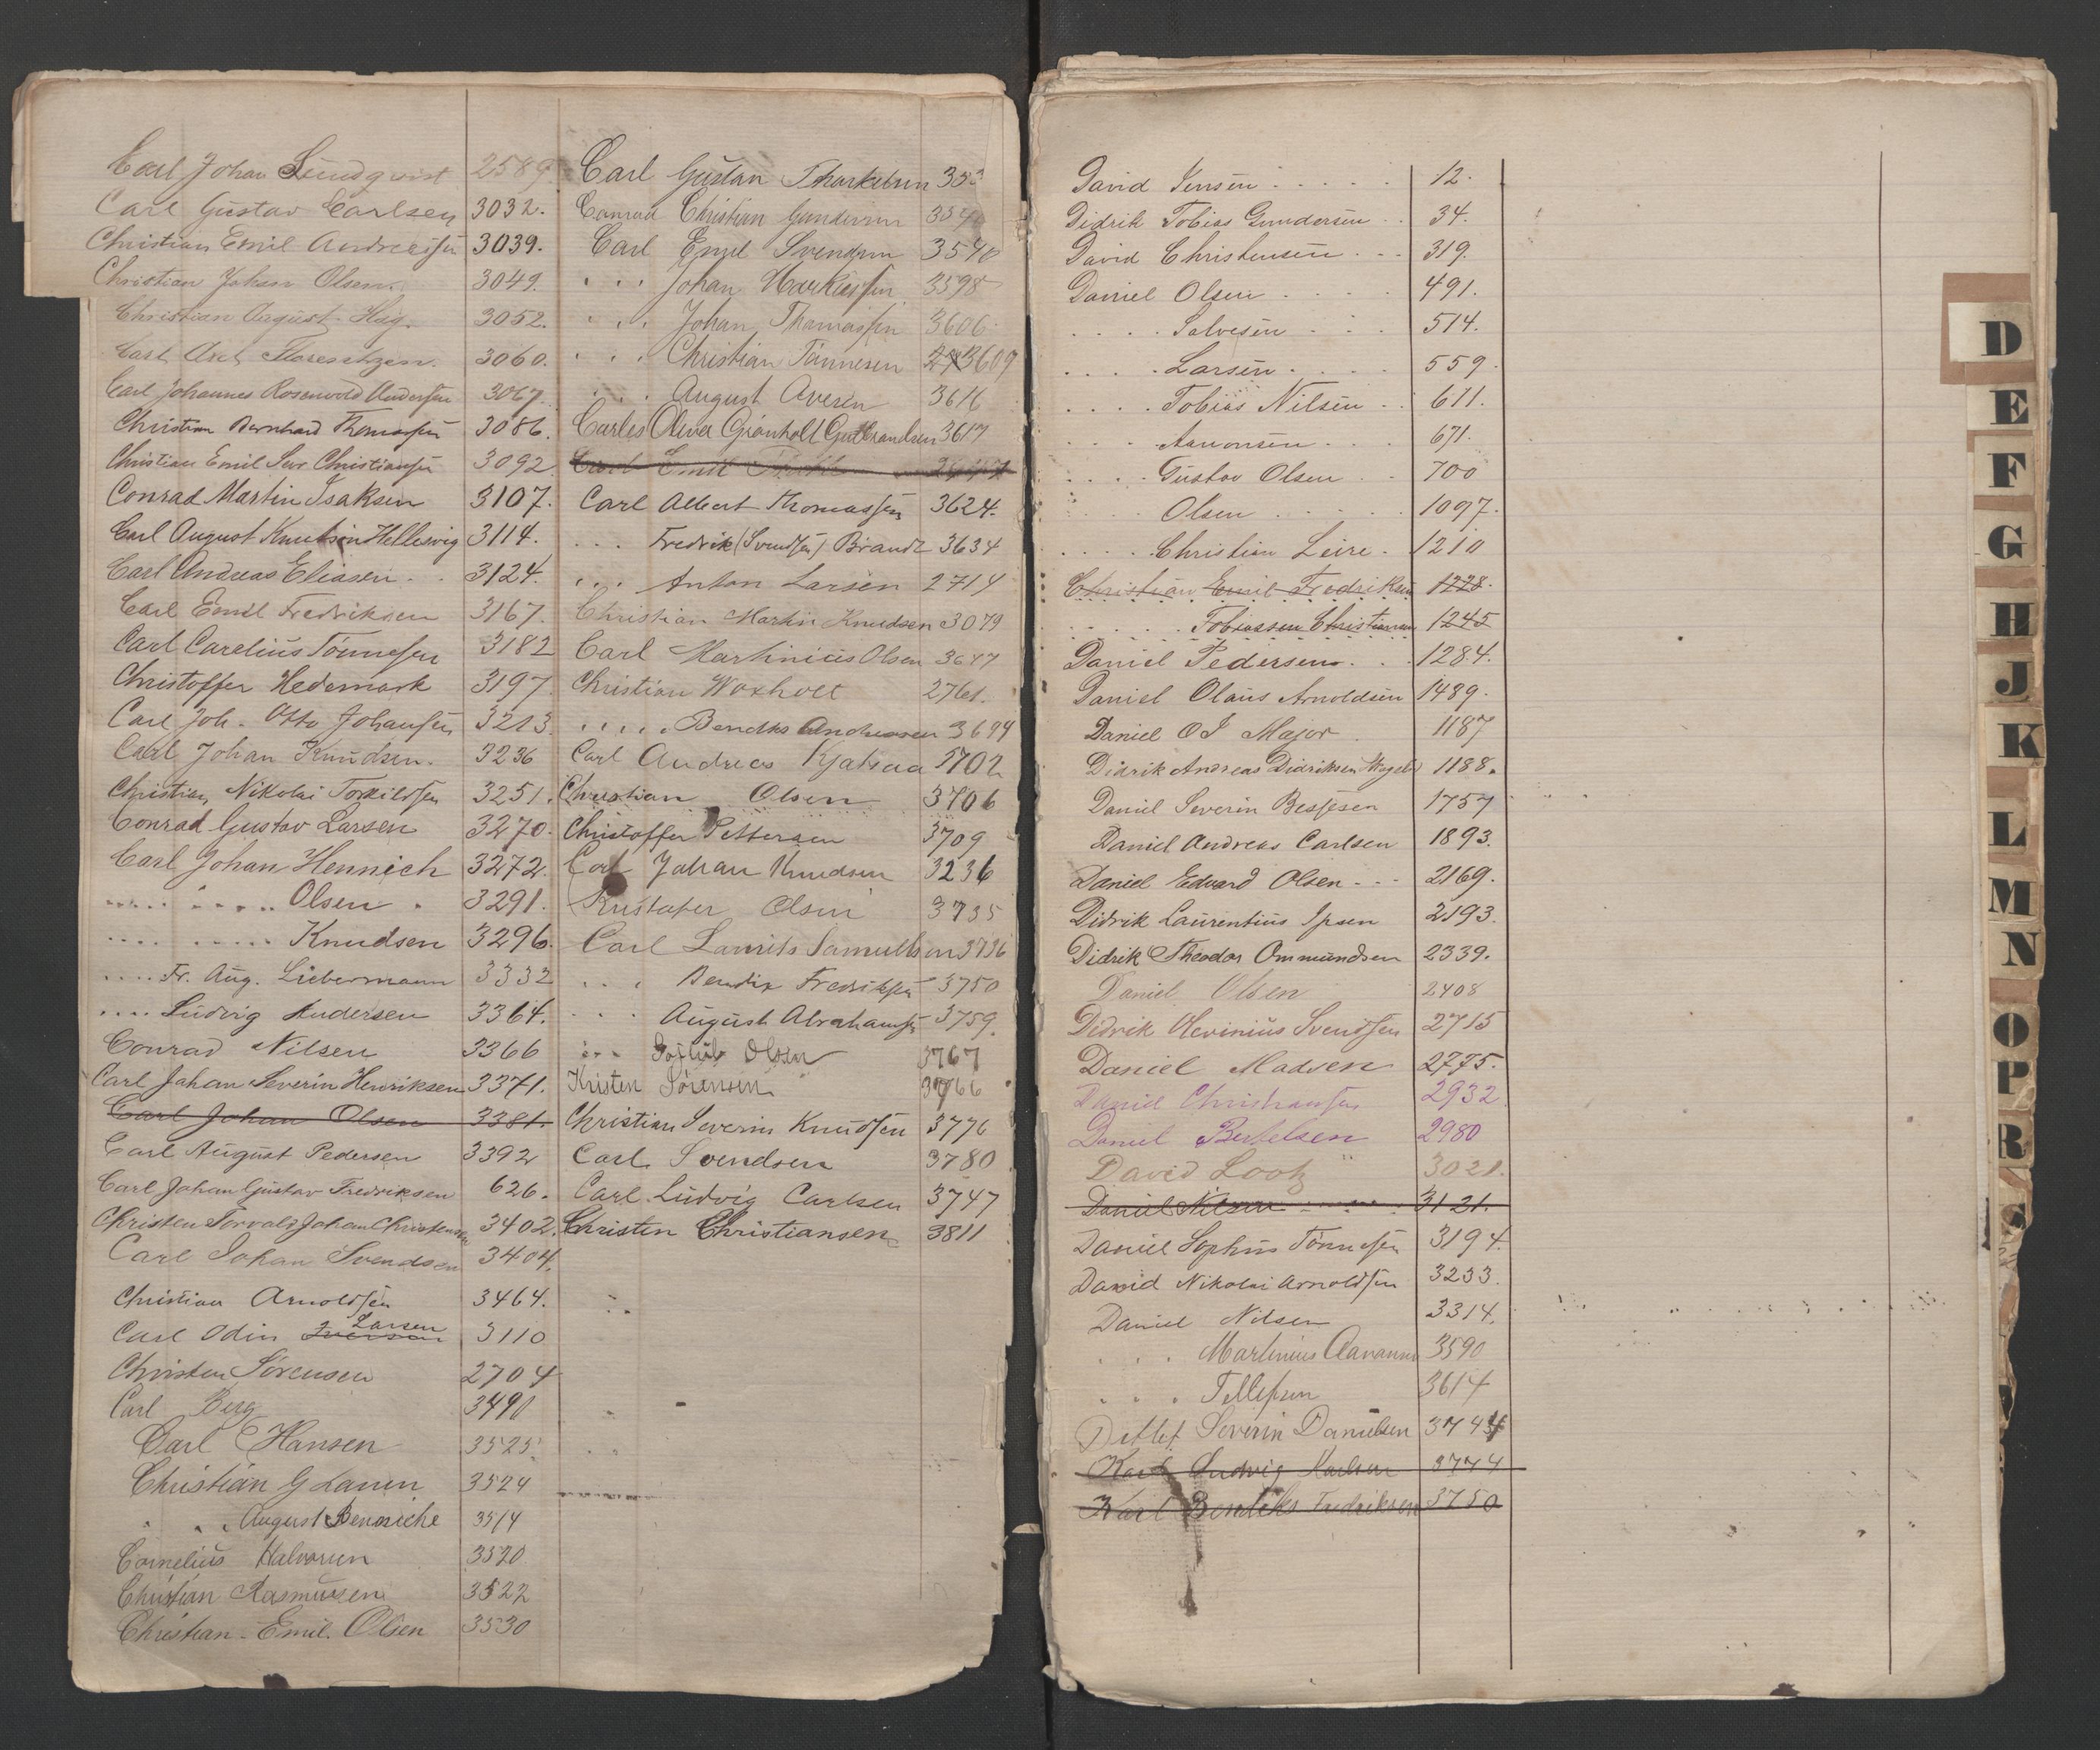 Carl Johan Lundqvist 2589
Carl Gustav Carlsen 3032.
Christian Emil Andreassen 3039.
Christian Johan Olsen. 3049.
Christian August Hag. 3052.
Carl Axel 3060.
Carl Johannes Rosenvold Andersen 3067.
Christian Bernhard Thomassen 3086.
Christian Emil Sev. Christiansen 3092
Conrad Martin Isaksen 3107.
Carl August Knutsen Hellesvig 3114.
Carl Andreas Eliasen 3124.
Carl Emil Fredriksen 3167.
Carl Carelius Tönnesen 3182
Christoffer Hedemark 3197
Carl Joh. Otto Johansen 3213
Carl Johan Knudsen. 3236
Christian Nikolai Torkildsen 3251.
Conrad Gustav Larsen 3270.
Carl Johan Hennich 3272.
Olsen 3291.
Knudsen 3296.
Fr. Aug. Liebermann 3332
Ludvig Andersen 3364.
Conrad Nilsen 3366
Carl Johan Severin Henriksen 3371.
Carl Johan Olsen 3381.
Carl August Pedersen 3392
Carl Johan Gustav Fredriksen 626.
Christen Torvald Johan Christensen 3402.
Carl Johan Svendsen 3404.
Christian Arnoldsen 3464.
Carl Odin Iversen Larsen 3110
Christen Sörensen 2704
Carl Berg 3491
Carl Hansen 3525
Christian G Larsen 3524
August Benniche 3514
Cornelius Halvorsen 3520
Christian Rasmussen 3522
Christian Emil. Olsen 3530
Carl Gustav Tharkelsen 353
Conrad Christian Gundersen 3540
Carl Emil Svendsen 3540
Johan Markussen 3598
Johan Thomassen 3606
Christian Tönnesen 3609
August Avesen 3616
Carles Oliver Grönholt Gulbrandsen 3617
Carl Emil
Carl Albert Thomassen 3624.
Fredrik (Svendsen) Brandt 3634
Anton Larsen 2714
Christian Martin Knudsen 3079
Carl Martinius Olsen 3647
Christian Woxholt 2761.
Bendts Andreasen 3694
Carl Andreas Kjatraa 3702
Christian Olsen 3706
Christoffer Pettersen 3709
Carl Johan Knudsen 3236
Kristofer Olsen 3735
Carl Laurits Samuelsen 3736
Bendix Fredriksen 3750
August Abrahamsen 3759.
Olsen 3767
Kristen Sörensen 3766
Christian Severin Knudsen 3776
Carl Svendsen 3780
Carl Ludvig Carlsen 3747
Christen Christiansen 3811
David Jensen 12.
Didrik Tobias Gundersen 34.
David Christensen 319.
Daniel Olsen 491.
Salvesen 514.
Larsen 559.
Tobias Nilsen 611.
Aanonsen 671.
Gustav Olsen 700
Olsen 1097.
Christian Leire. 1210
Christian Emil Fredriksen 1228.
Tobiassen Christiansen 1245
Daniel Pedersen. 1284.
Daniel Olaus Arnoldsen 1489.
Daniel O J Major 1187
Didrik Andreas Didriksen 1188.
Daniel Severin Bessesen 1757
Daniel Andreas Carlsen 1893.
Daniel Edvard Olsen 2169.
Didrik Laurentius Ipsen 2193.
Didrik Theodor Ommundsen 2339.
Daniel Olsen 2408
Didrik Severinius Svendsen 2715
Daniel Madsen 2775.
David Christiansen 2932
Daniel Bertelsen 2980
David Lootz 3021.
Daniel Nilsen 3121.
Daniel Sophus Tönnesen 3194.
David Nikolai Arnoldsen 3233.
Daniel Nilsen 3314.
Martinius Aanansen 3590
Tellefsen 3614
Detlef Severin Danielsen 3744
Karl Ludvig Karlsen 3744
Karl Bendiks Fredriksen 3750
D
E
F
G
H
J
K
L
M
N
O
P
R
S